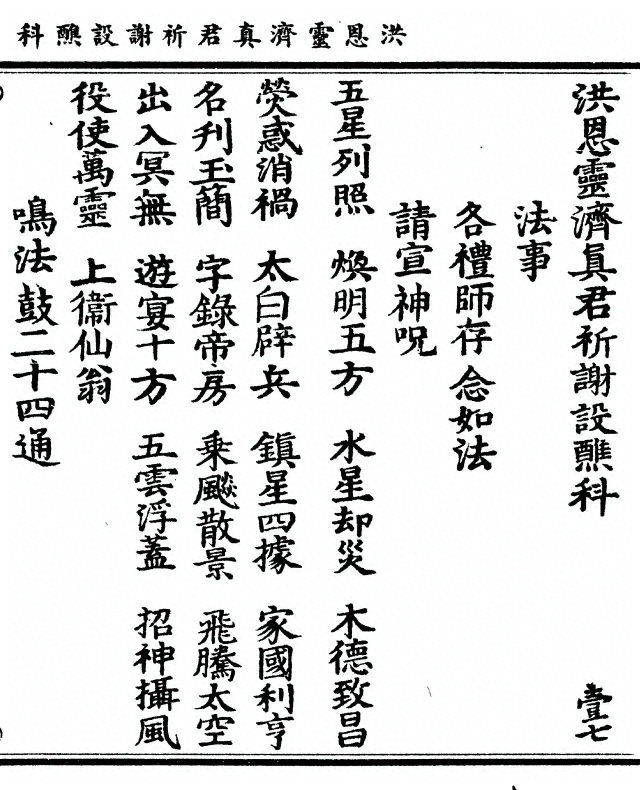 洪恩靈濟真君祈謝設醮科
洪恩靈濟真君祈謝設醮科 壹七
法事
各禮師存念如法
請宣神呪
五星列照 煥明五方 水星却災 木德致昌
熒惑消禍 太白辟兵 鎮星四據 家國利亨
名刋玉簡 字錄帝房 乘飈散景 飛騰太空
出入冥無 遊宴十方 五雲浮蓋 招神攝風
役使萬靈 上衞仙翁
鳴法鼓二十四通